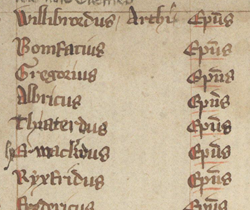 Willibrordus Archi Epus
Bonifacius Epus
Gregorius Epus
Albricus Epus
Thiaterdus Epus
Epus
Ryxfridus Epus
Epus